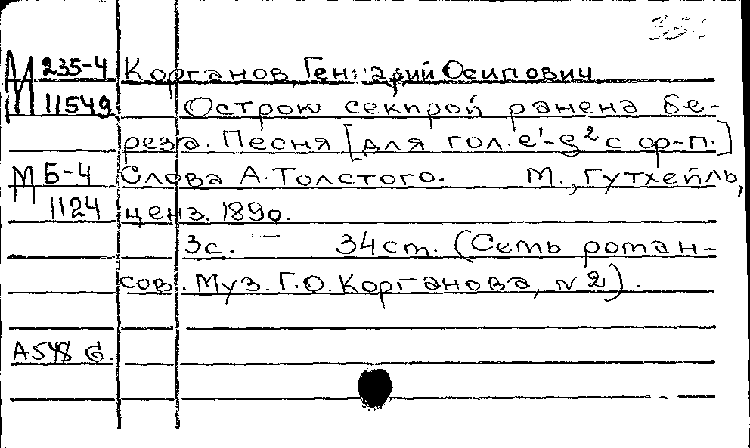 М 235-4 Корганов, Геннадий Осипович
М 11549 Острою секирой ранена бе-
реза. Песня [для гол. e¹-g² с ф-п.]
М Б-4 Слова А. Толстого. М., Гутхейль,
1124 ценз. 1890.
3с. — 34 ст. (Семь роман-
сов. Муз. Г.О. Корганова, № 2).
А 548 б.